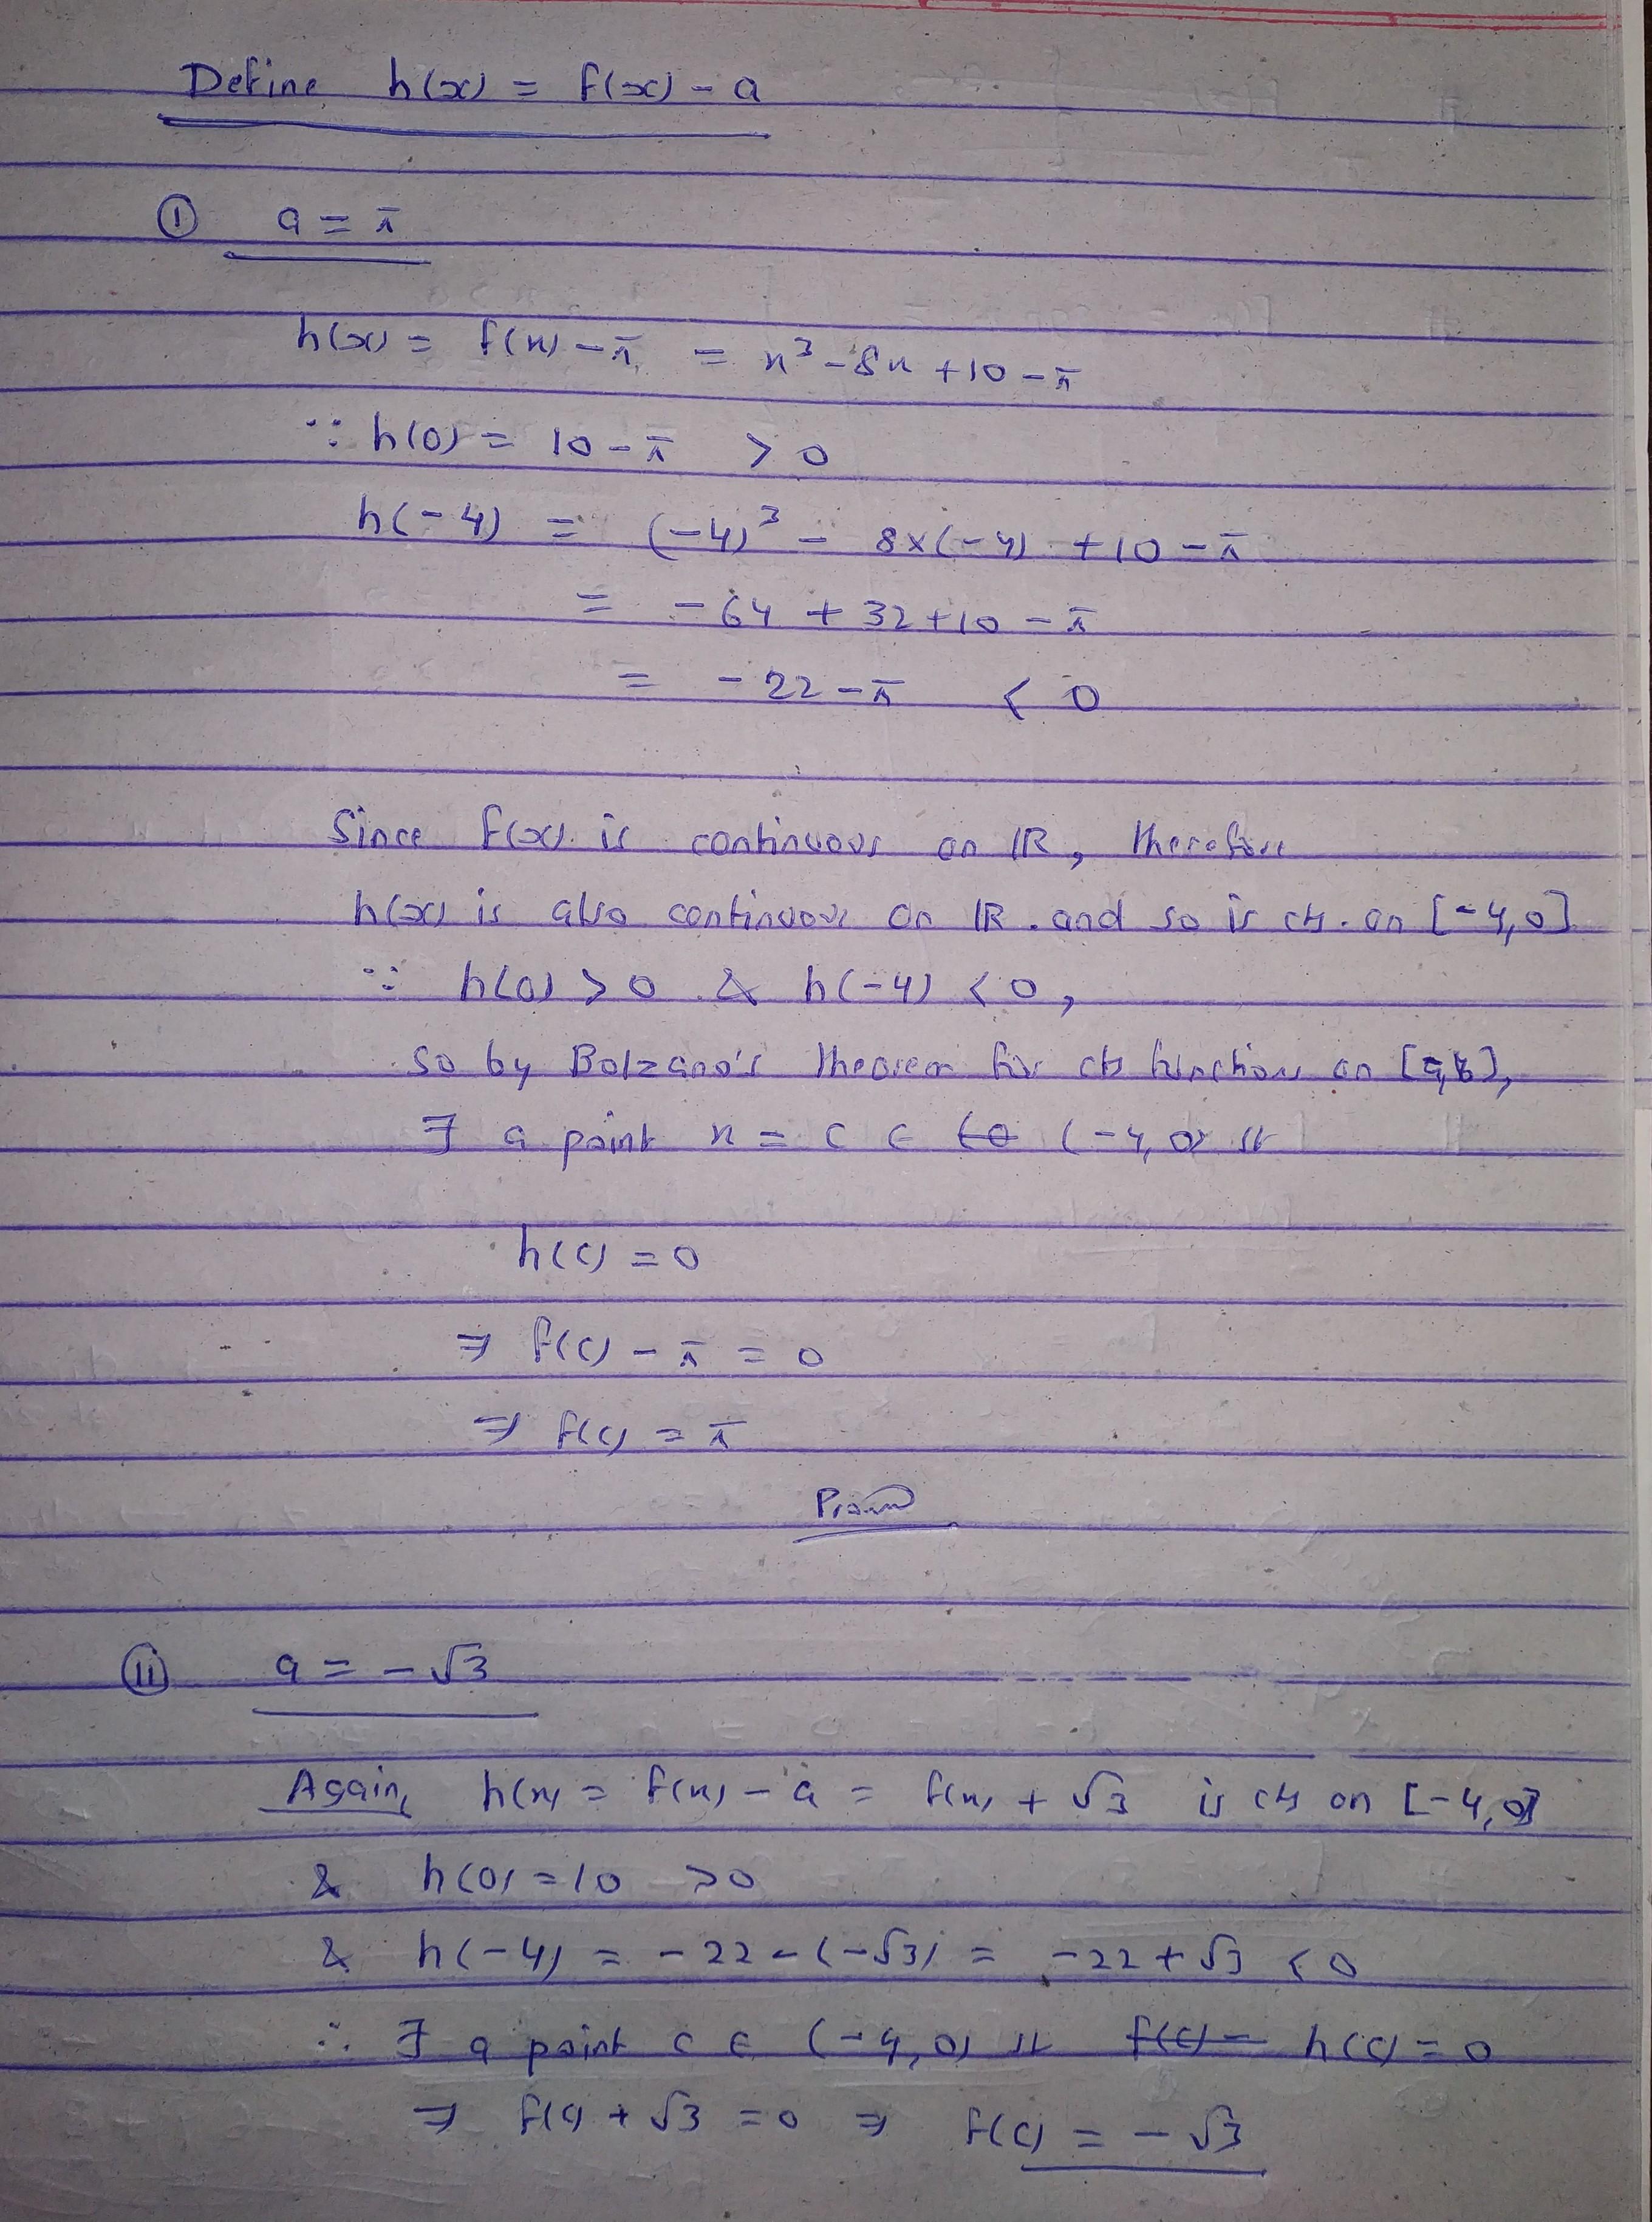 Define h(x) = f(x) - a
① a = π
h(x) = f(x) - π = x³ - 8x + 10 - π
∵ h(0) = 10 - π > 0
h(-4) = (-4)³ - 8×(-4) + 10 - π
= -64 + 32 + 10 - π
= -22 - π < 0
Since f(x) is continuous on ℝ, therefore
h(x) is also continuous on ℝ. and so is cts. on [-4,0]
∵ h(0) > 0 & h(-4) < 0,
so by Bolzano's theorem for cts functions on [a,b],
∃ a point x = c ∈ (-4, 0) st
h(c) = 0
⇒ f(c) - π = 0
⇒ f(c) = π
Proved
ⅱ a = -√3
Again, h(x) = f(x) - a = f(x) + √3 is cts on [-4,0]
& h(0) = 10 > 0
& h(-4) = -22 - (-√3) = -22 + √3 < 0
∴ ∃ a point c ∈ (-4, 0) st f(c) = h(c) = 0
⇒ f(c) + √3 = 0 ⇒ f(c) = -√3